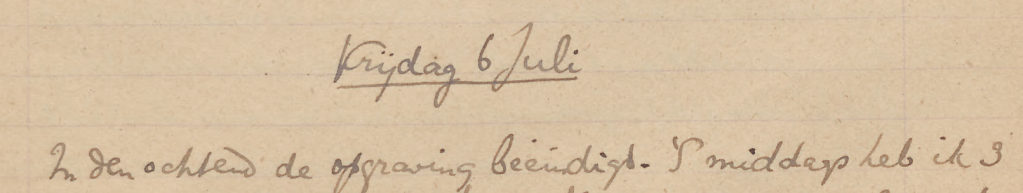 Vrijdag 6 Juli
In den ochtend de opgraving beëindigd. 'S middags heb ik 3